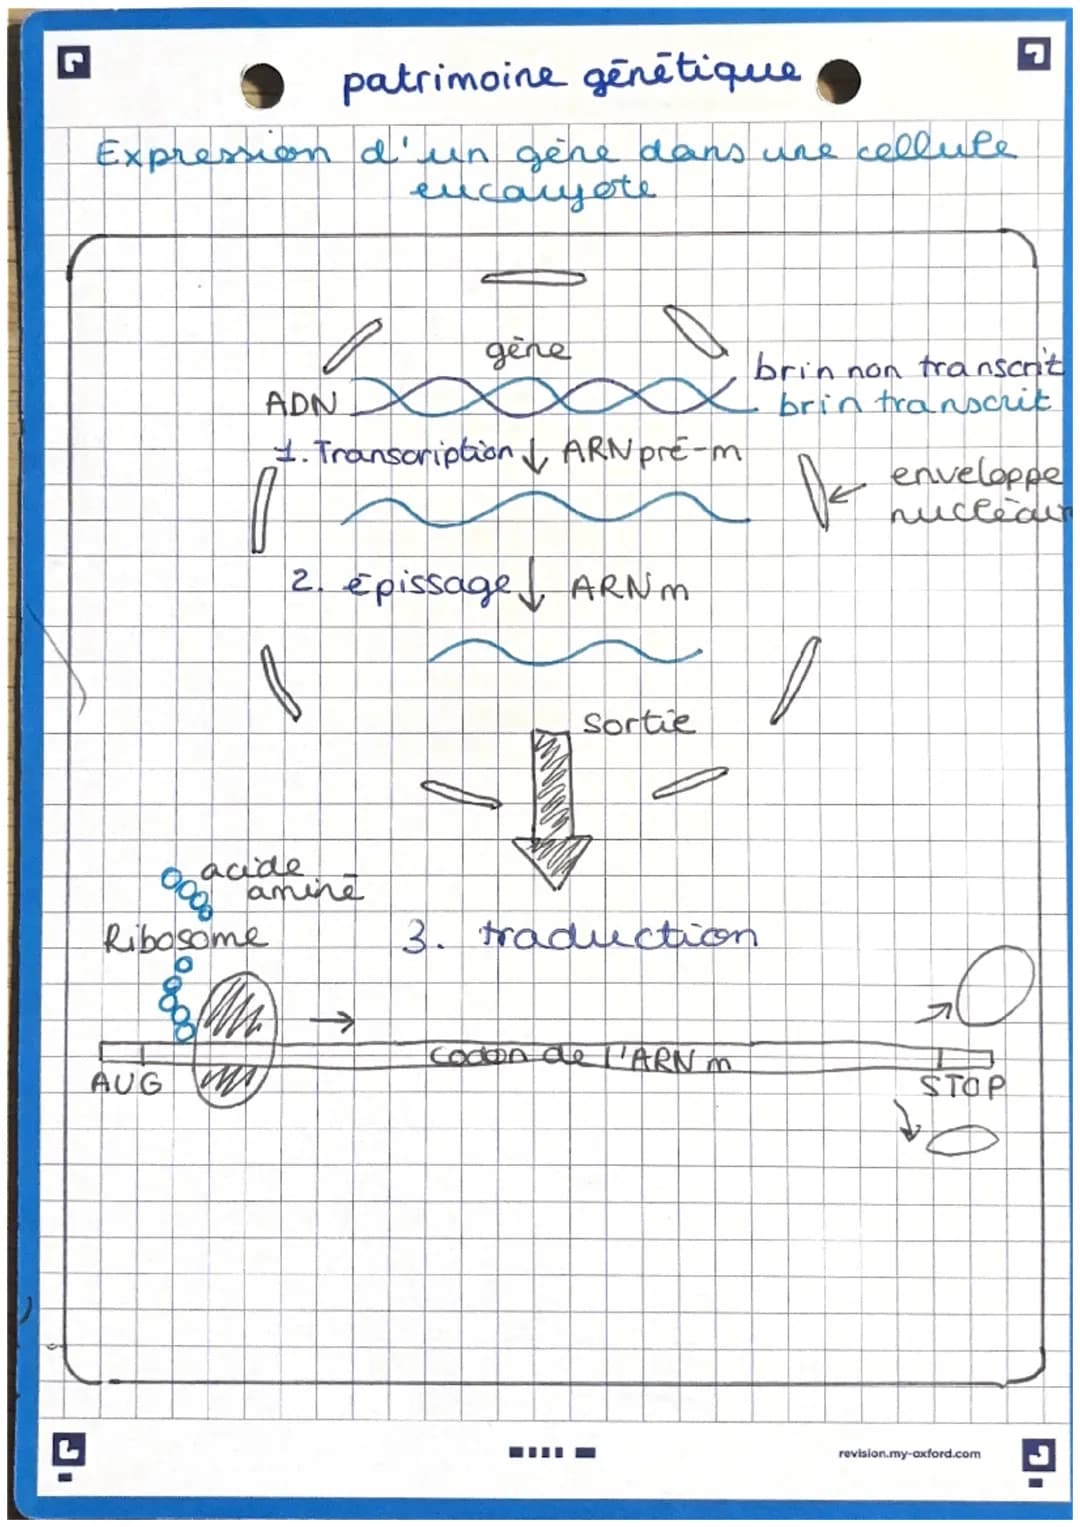 patrimoine génētique
Expression d'un gène dans une cellule
eucaryote
gène
brin non transcrit
ADN
brin transcrit
1. Transcription ↓ ARN pré-m
enveloppe
2. épissage ↓ ARN m
sortie
acide
aminé
Ribosome
3. traduction
codon de l'ARN m
AUG
STOP
revision.my-oxford.com